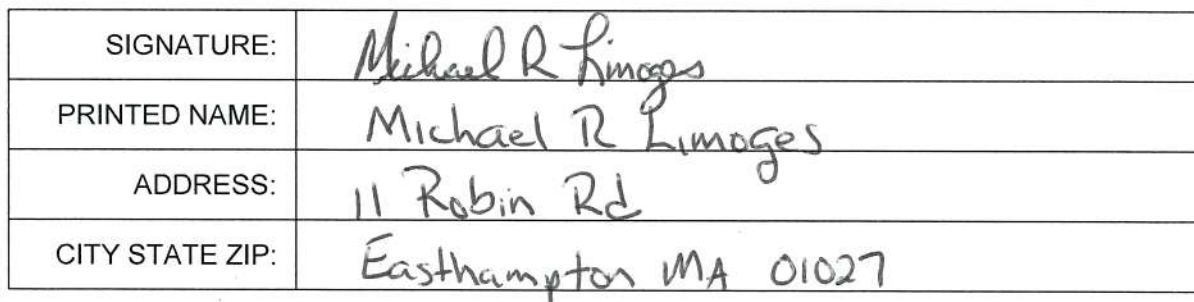 SIGNATURE: Michael R Limoges
PRINTED NAME: Michael R Limoges
ADDRESS: 11 Robin Rd
CITY STATE ZIP: Easthampton MA 01027